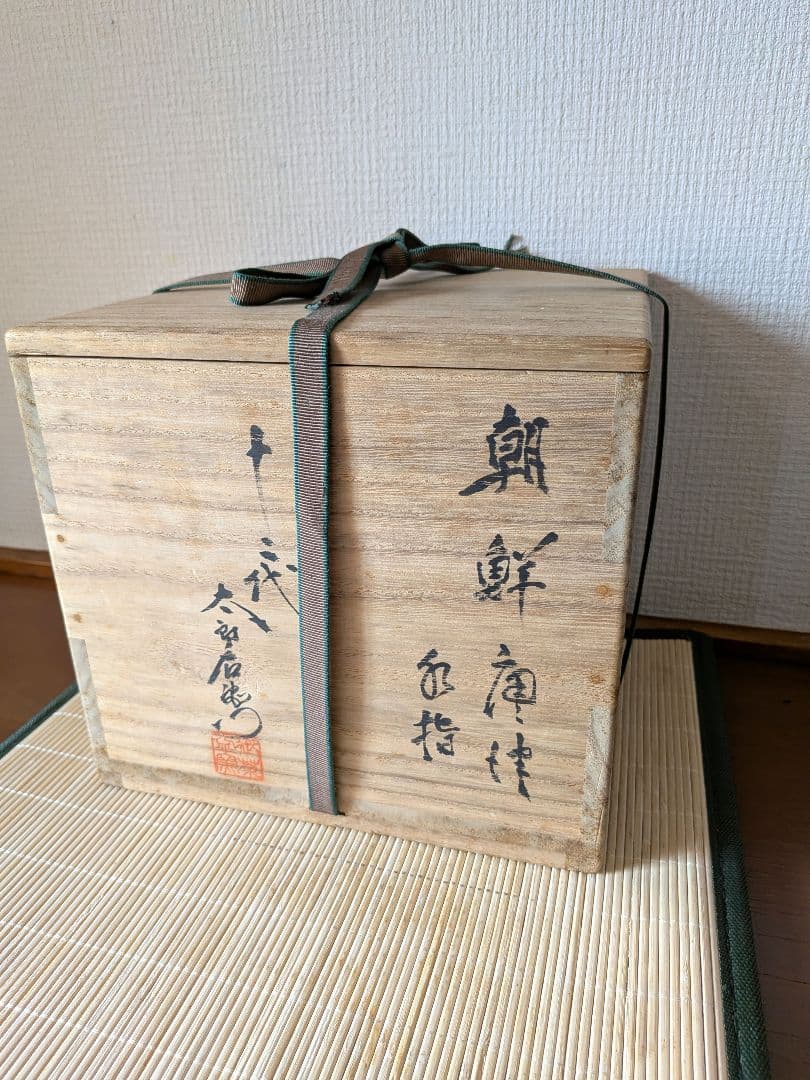 朝鮮唐津
水指
十三代
太郎右衛門